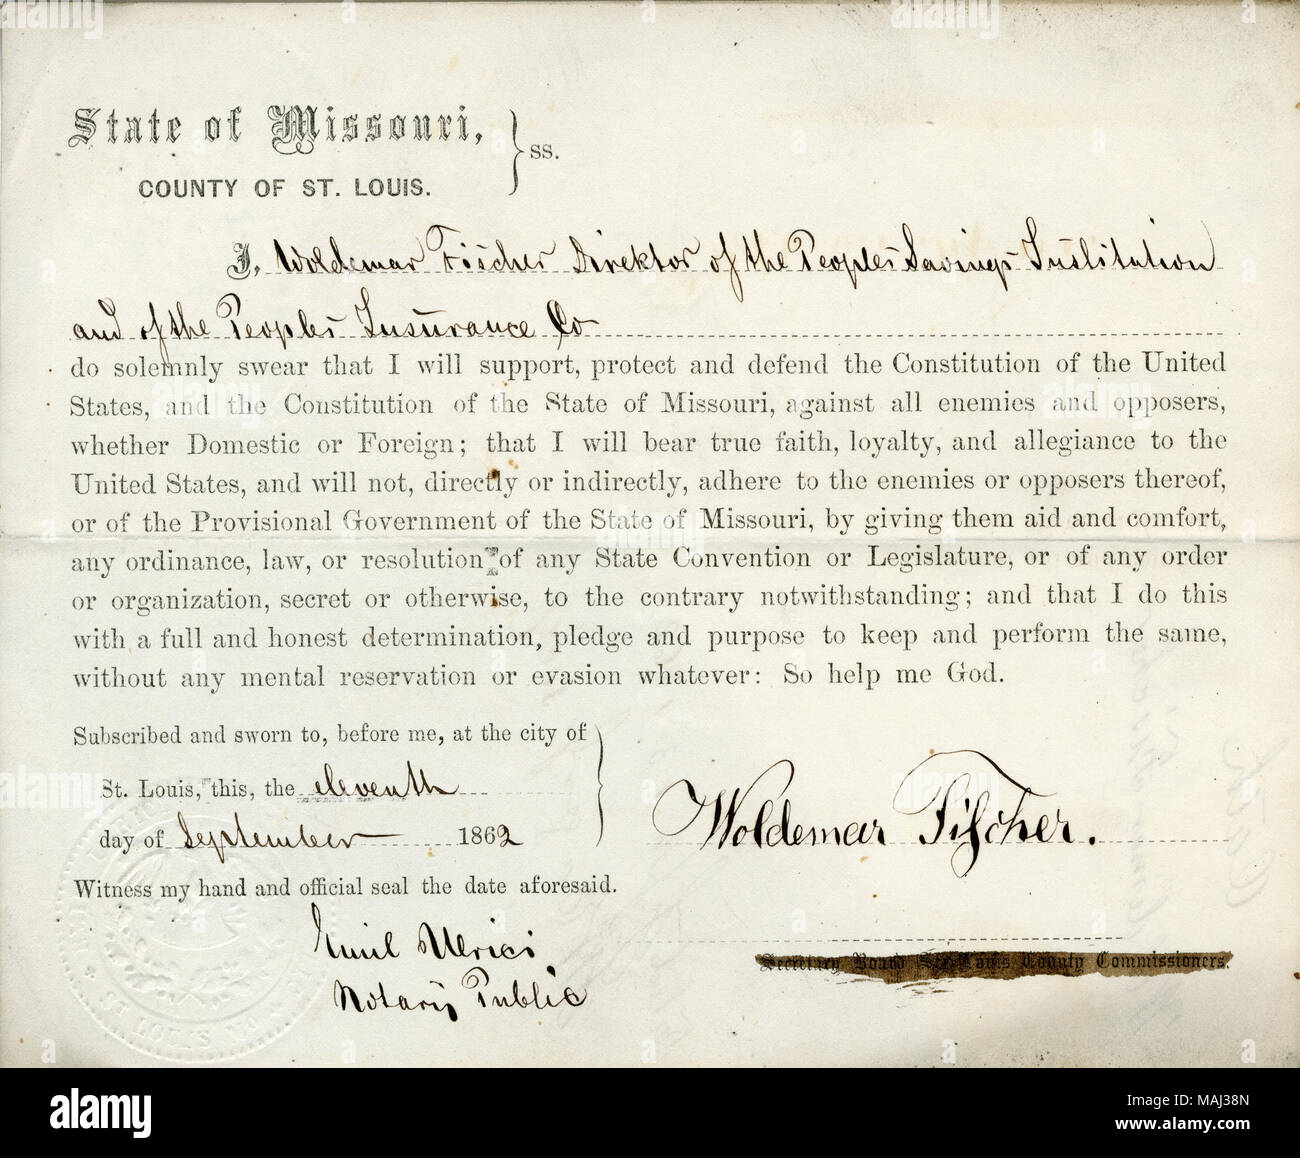 State of Missouri, } ss.
COUNTY OF ST. LOUIS.
I, Woldemar Fischer Direktor of the Peoples Savings Institution
and of the Peoples Insurance Co
do solemnly swear that I will support, protect and defend the Constitution of the United
States, and the Constitution of the State of Missouri, against all enemies and opposers,
whether Domestic or Foreign; that I will bear true faith, loyalty, and allegiance to the
United States, and will not, directly or indirectly, adhere to the enemies or opposers thereof,
or of the Provisional Government of the State of Missouri, by giving them aid and comfort,
any ordinance, law, or resolution of any State Convention or Legislature, or of any order
or organization, secret or otherwise, to the contrary notwithstanding; and that I do this
with a full and honest determination, pledge and purpose to keep and perform the same,
without any mental reservation or evasion whatever: So help me God.
Subscribed and sworn to, before me, at the city of
St. Louis, this, the eleventh
day of September 1862
Woldemar Fischer.
Witness my hand and official seal the date aforesaid.
Emil Ulrici
Notary Public
Secretary Board St. Louis County Commissioners.
ST LOUIS MO
alamy
Image ID: MAJ38N
www.alamy.com